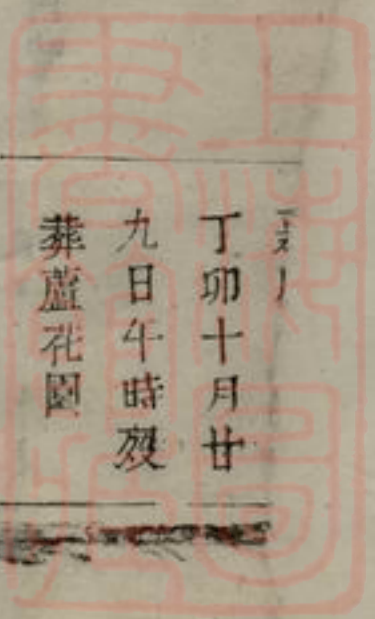 丁卯十月廿
九日午時歿
葬蘆花園